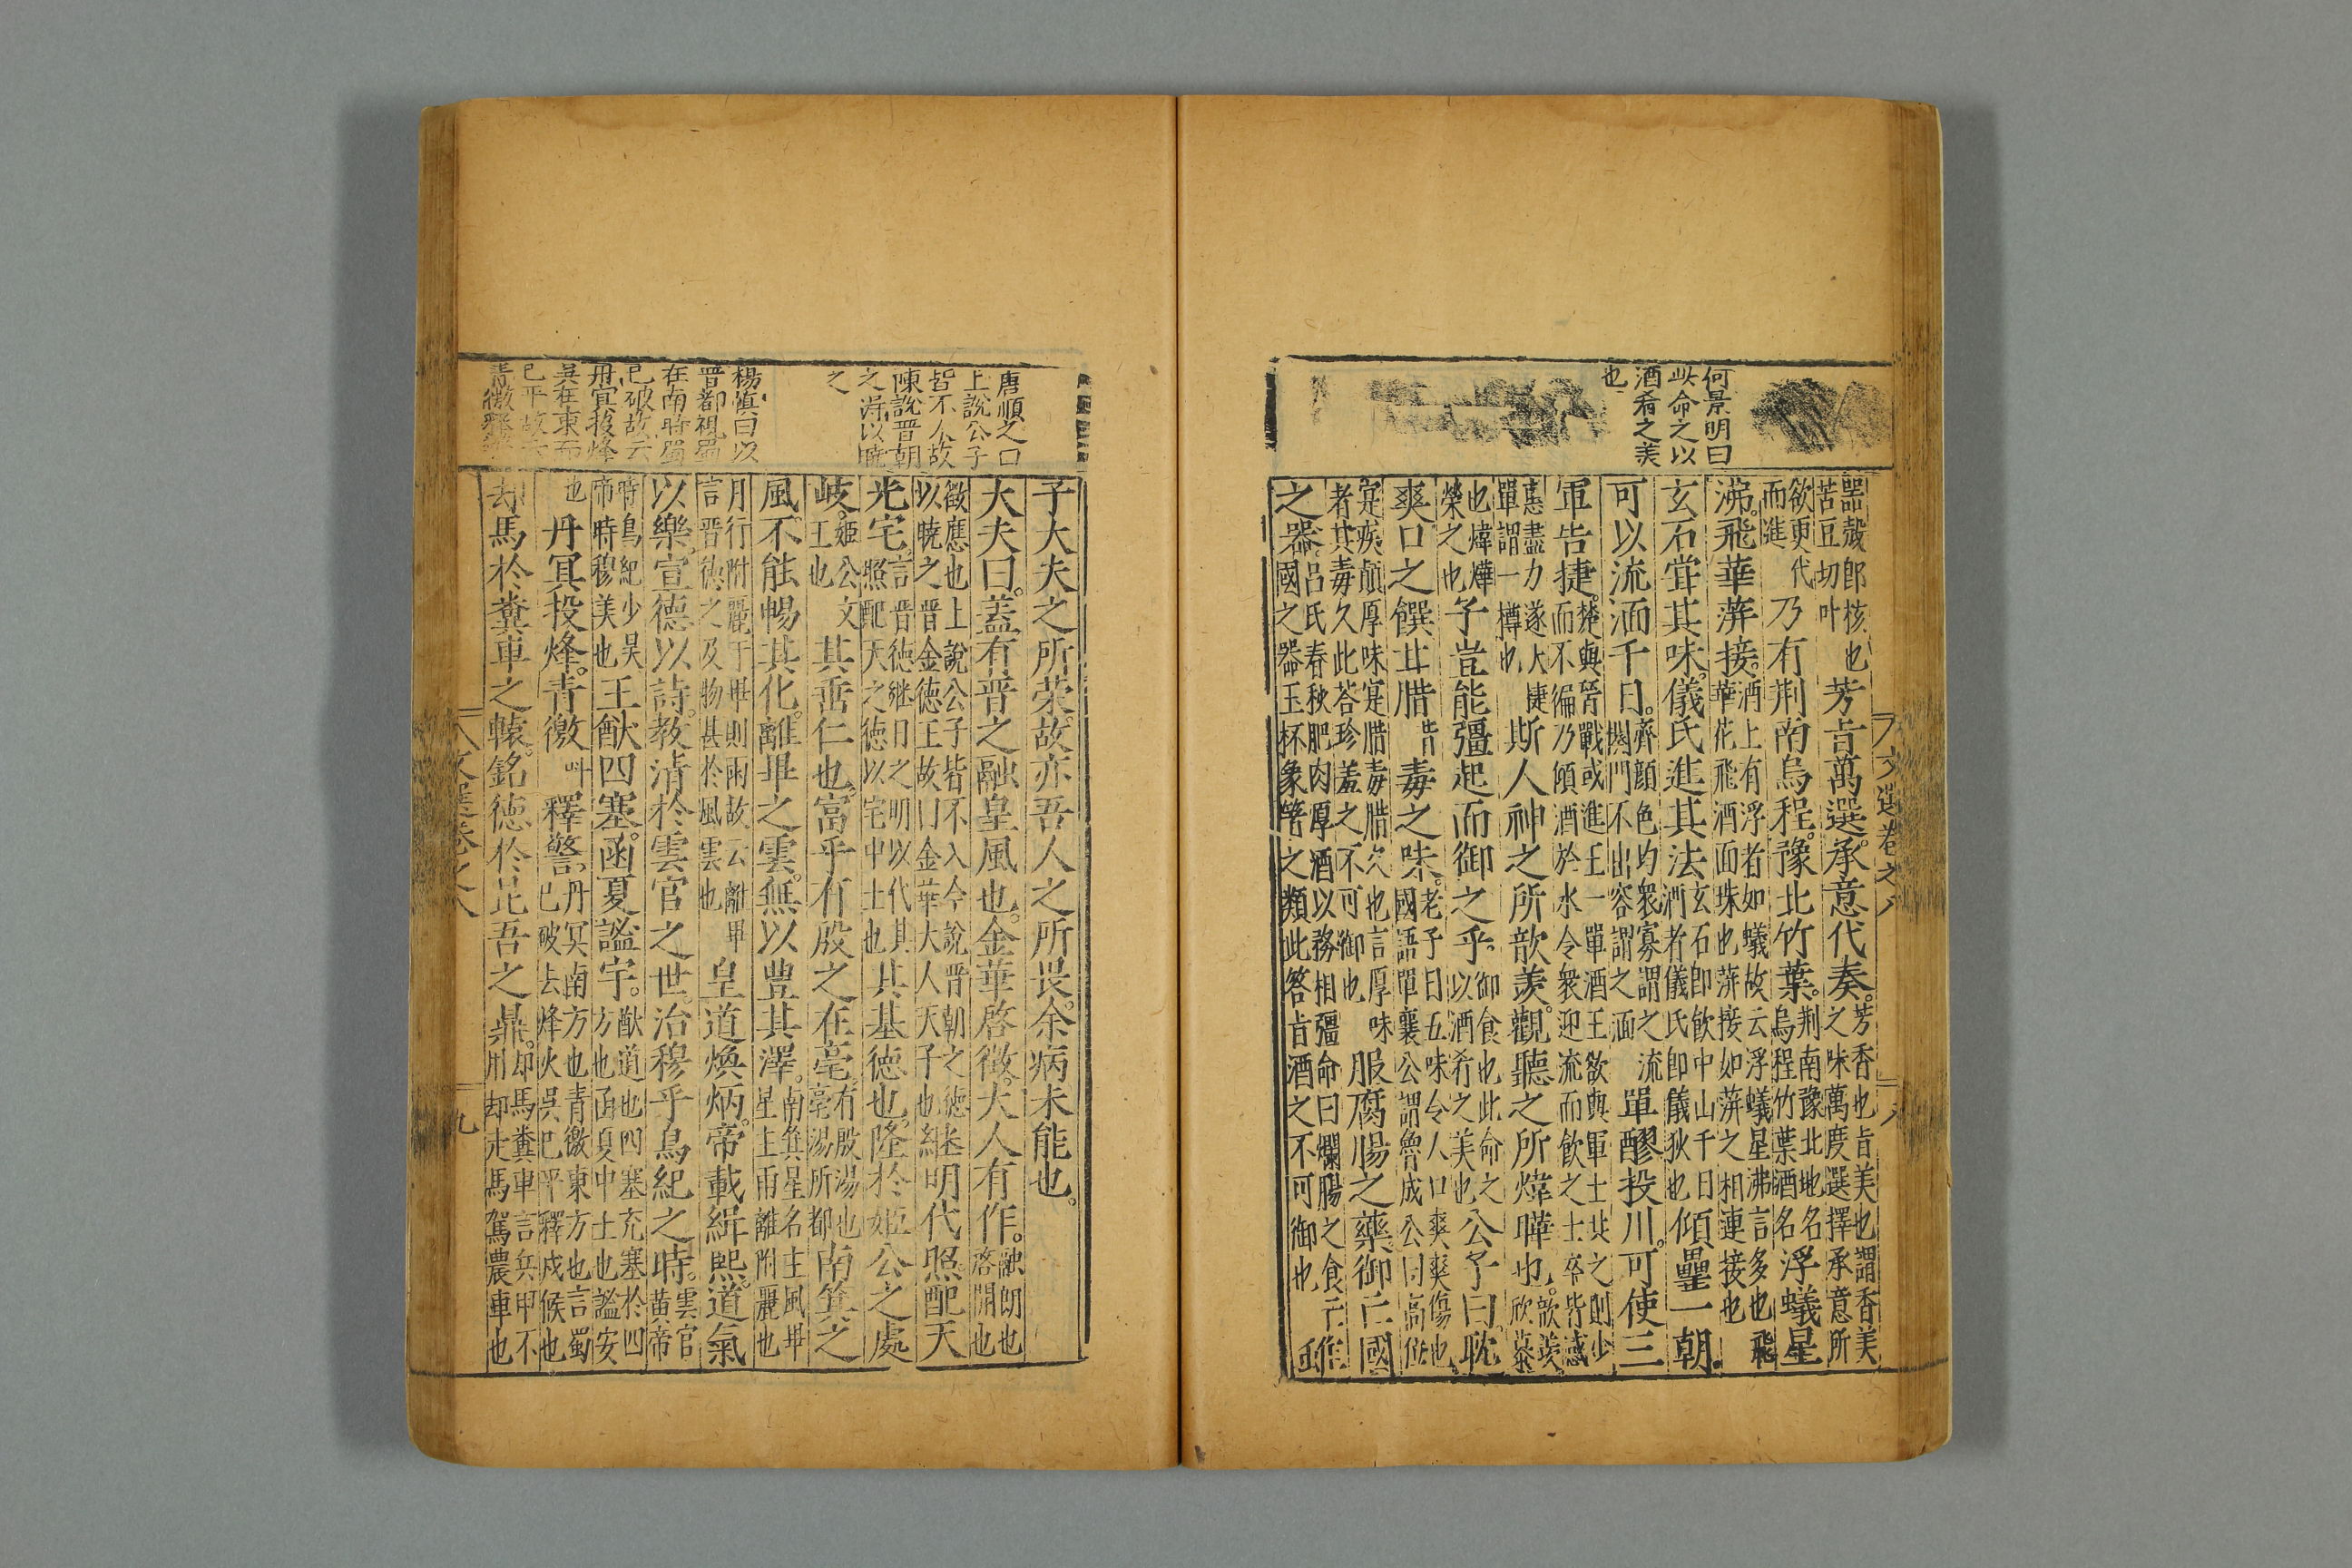 何景明曰
此命之以
酒肴之羙
也
文選卷之八
八
噐殻即核也苦豆切叶芳旨萬選。承意代奏。芳香也旨美也謂香美之味萬度選擇承意所
欲更代而進乃有荆南烏程。豫北竹葉。荆南豫北地名烏程竹葉酒名浮蟻星
沸。飛華蓱接。酒上有浮者如蟻故云浮蟻星沸言多也飛華花飛酒面珠也蓱接如蓱之相連接也
玄石甞其味。儀氏進其法。玄石即飲中山千日酒者儀氏即儀狄也傾罍一朝。
可以流湎千日。齊顔色均衆寡謂之流閉門不出容謂之湎單醪投川。可使三
軍告捷。楚與晉戰或進王一單酒王欲與軍士共之則少而不徧乃傾酒於水令衆迎流而飲之士卒皆感
恵盡力遂大捷單謂一樽也斯人神之所歆羡。觀聽之所煒曄也。歆羡欣慕
也煒燁榮之也子豈能彊起而御之乎。御食也此命之以酒肴之美也公子曰。耽
爽口之饌甘腊昔毒之味。老子曰五味令人口爽爽傷也國語單襄公謂魯成公曰高位
寔疾顛厚味寔腊毒腊久也言厚味者其毒久此荅珍羞之不可御也服腐腸之藥御亡國
之器。呂氏春秋肥肉厚酒以務相彊命曰爛腸之食國之器玉杯象箸之類此答旨酒之不可御也
唐順之曰
上說公子
皆不入故
陳說晋朝
之淂以曉
之
楊慎曰以
晋都視蜀
在南時蜀
已破故云
丹㝠投烽
吳在東而
已平故云
青徼釋警
子大夫之所荣。故亦吾人之所畏。余病未能也。
大夫曰。葢有晋之融皇風也。金華啓徵。大人有作。融朗也啓開也
徵應也上說公子皆不入今說晋朝之徳以曉之晋金徳王故曰金華大人天子也継明代照。配天
光宅。言晋徳継日之明以代其照配天之徳以宅中土也其基徳也。隆於姬公之處
岐。姬公文王也其垂仁也。富乎有殷之在亳。有殷湯也亳湯所都南箕之
風。不能暢其化。離畢之雲。無以豊其澤。南箕星名主風畢星主雨離附麗也
月行附麗于畢則雨故云離畢言晋徳之及物甚於風雲也皇道煥炳。帝載緝熙。道氣
以樂。宣德以詩。教清於雲官之世。治穆乎鳥紀之時。雲官黃帝
時鳥紀少昊帝時穆美也王猷四塞。函夏謐宇。猷道也四塞充塞於四方也函夏中土也謐安
也丹㝠投烽。青徼叫釋警。丹㝠南方也青徼東方也言蜀已破去烽火吳已平釋戍候也
却馬於糞車之轅。銘徳於昆吾之鼎。却馬糞車言兵甲不用却走馬駕農車也
文選卷之八
九